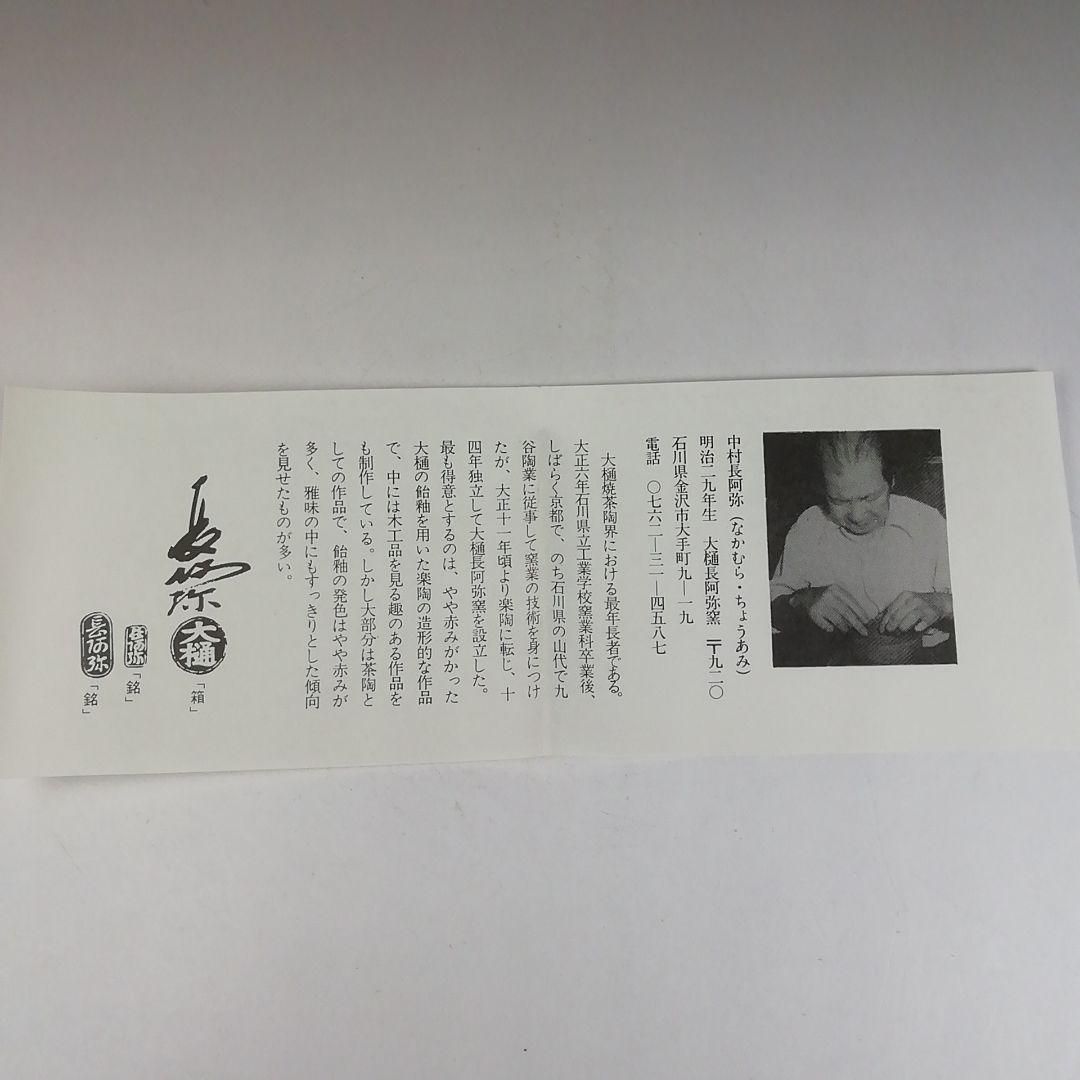 中村長阿弥（なかむら・ちょうあみ）
明治二九年生　大樋長阿弥窯　〒九二〇
石川県金沢市大手町九―一九
電話　〇七六二―三一―四五八七
大樋焼茶陶界における最年長者である。
大正六年石川県立工業学校窯業科卒業後、
しばらく京都で、のち石川県の山代で九
谷陶業に従事して窯業の技術を身につけ
たが、大正十一年頃より楽陶に転じ、十
四年独立して大樋長阿弥窯を設立した。
最も得意とするのは、やや赤みがかった
大樋の飴釉を用いた楽陶の造形的な作品
で、中には木工品を見る趣のある作品を
も制作している。しかし大部分は茶陶と
しての作品で、飴釉の発色はやや赤みが
多く、雅味の中にもすっきりとした傾向
を見せたものが多い。
長阿弥
大樋
「箱」
長阿弥
「銘」
長阿弥
「銘」